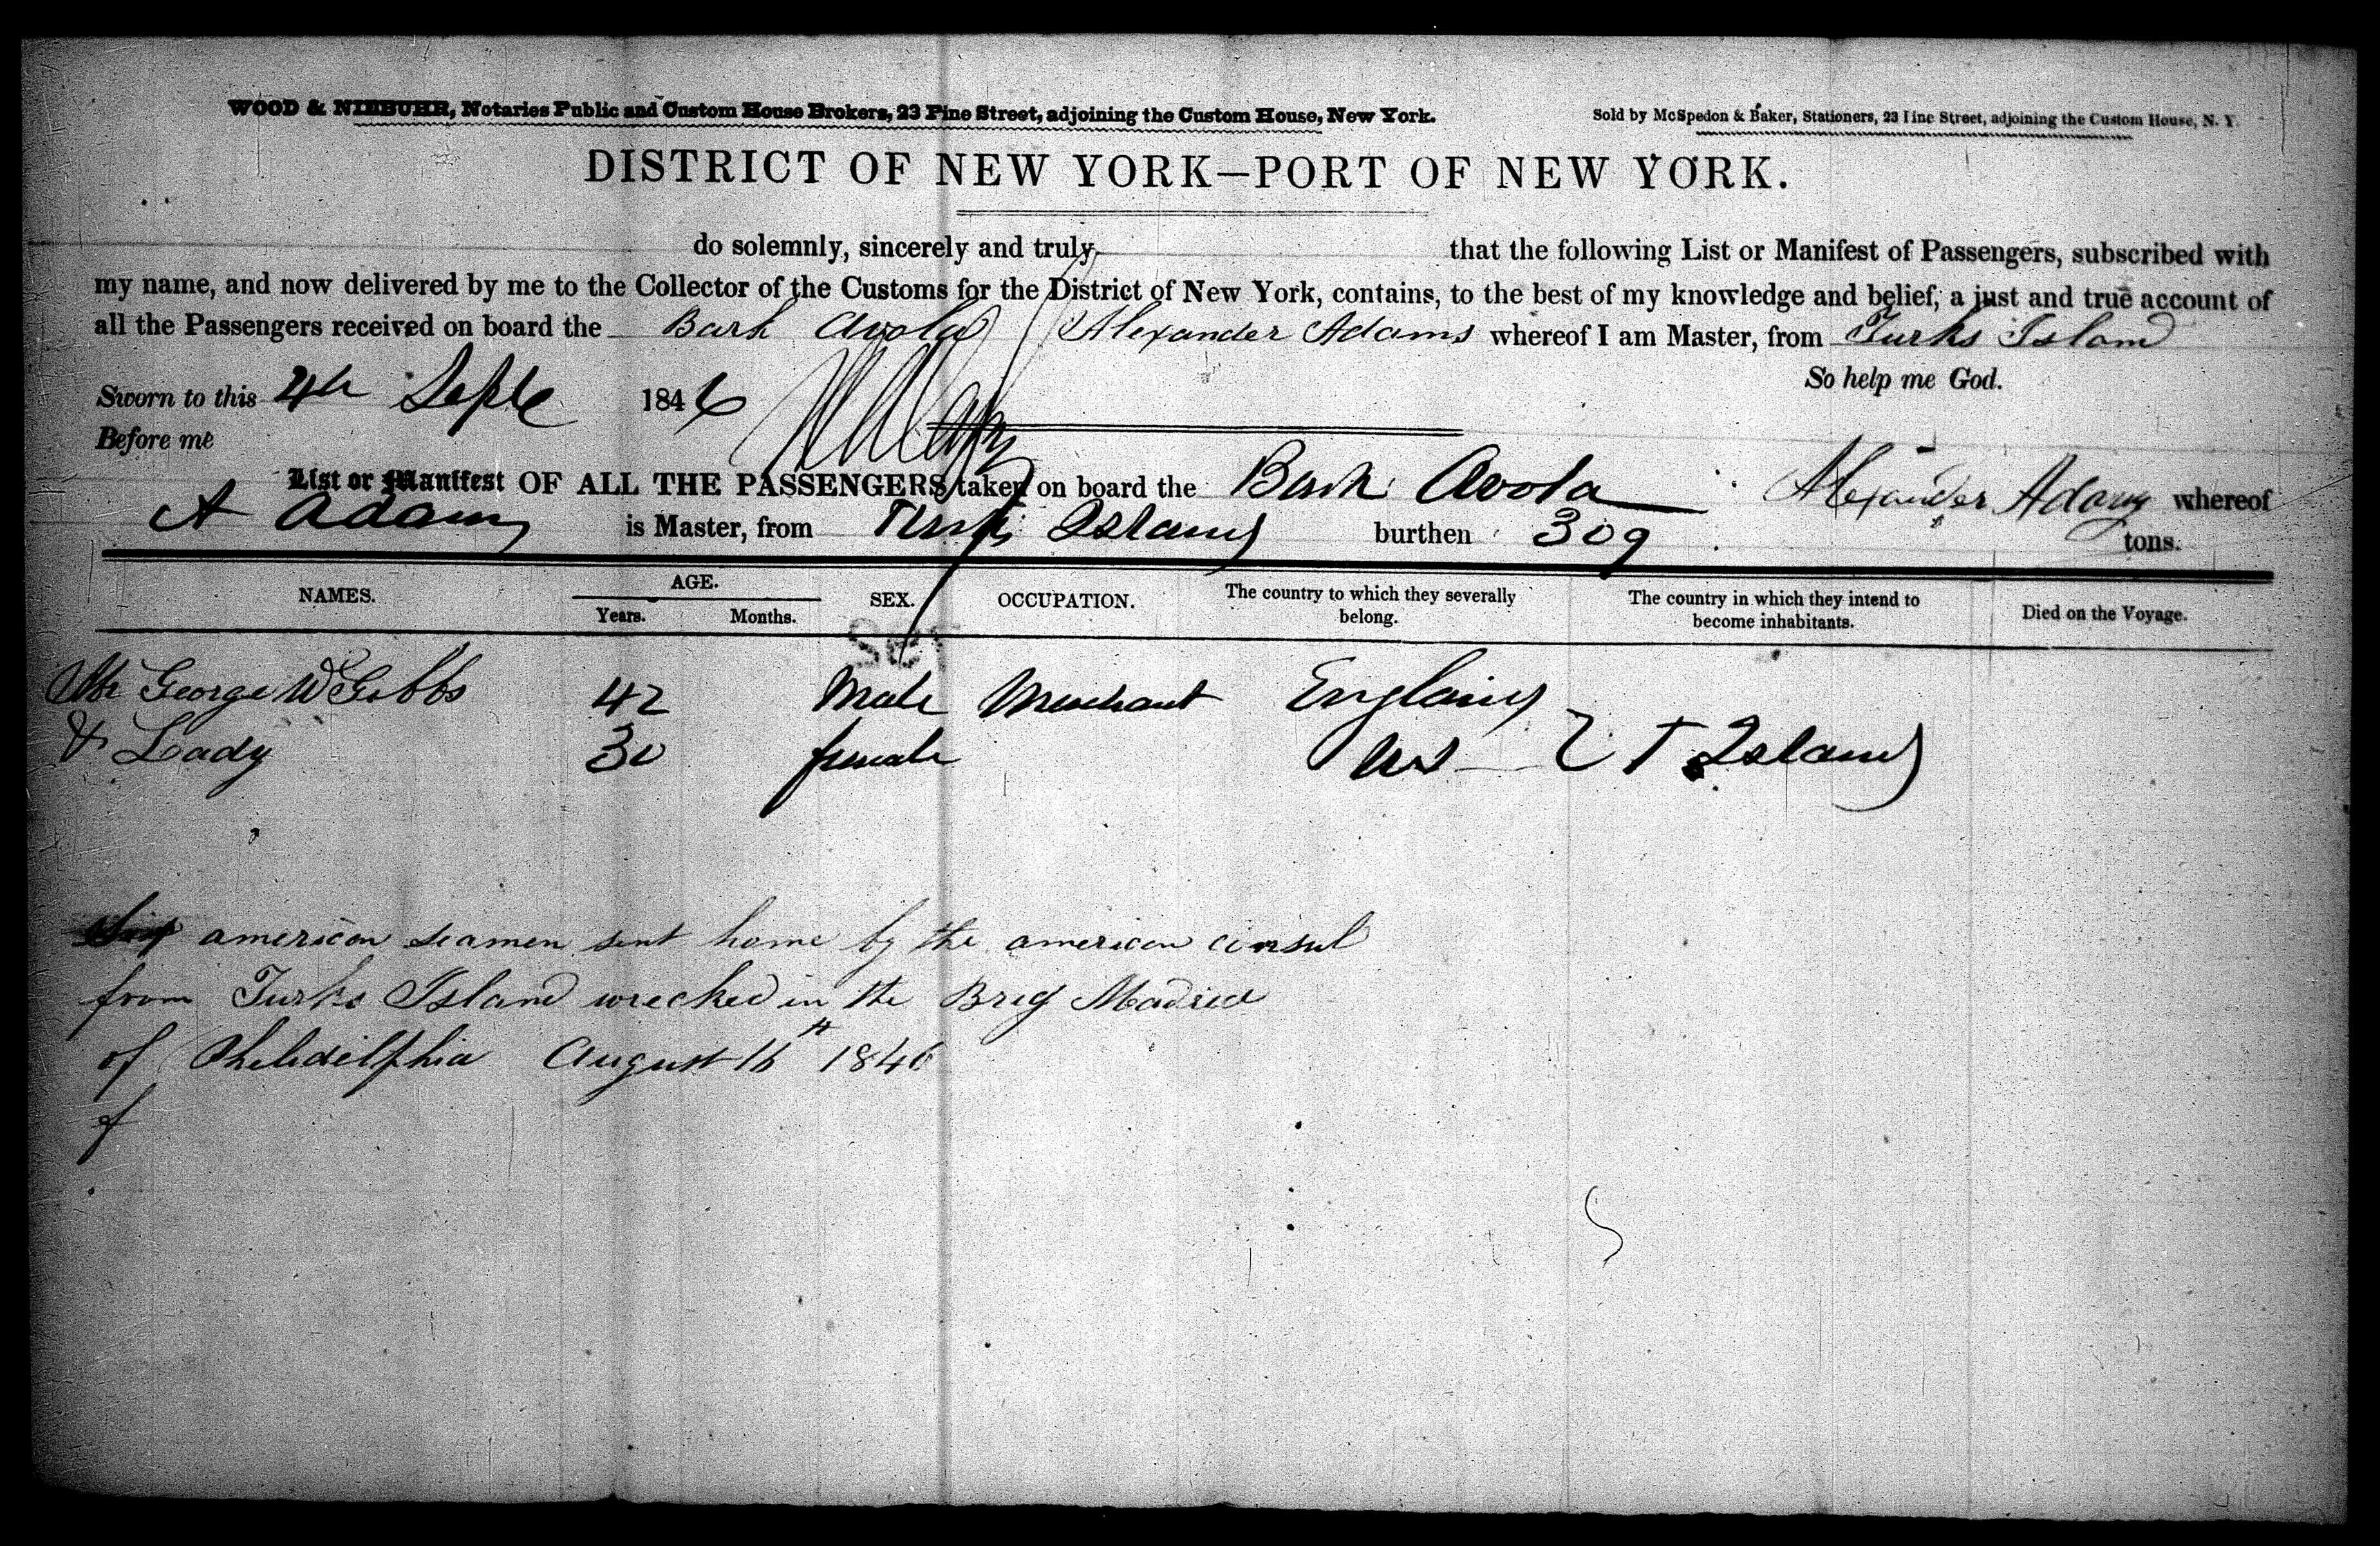 WOOD & NIEBUHR, Notaries Public and Custom House Brokers, 23 Pine Street, adjoining the Custom House, New York.
Sold by McSpedon & Baker, Stationers, 23 Pine Street, adjoining the Custom House, N. Y.
DISTRICT OF NEW YORK—PORT OF NEW YORK.
do solemnly, sincerely and truly, that the following List or Manifest of Passengers, subscribed with
my name, and now delivered by me to the Collector of the Customs for the District of New York, contains, to the best of my knowledge and belief, a just and true account of
all the Passengers received on board the Bark Avola Alexander Adams whereof I am Master, from Turks Island
So help me God.
Sworn to this 4th Septe 1846
Before me
List or Manifest OF ALL THE PASSENGERS taken on board the Bark Avola Alexander Adams whereof
A Adams is Master, from Turks Island burthen 309 tons.
NAMES. AGE. SEX. OCCUPATION. The country to which they severally belong. The country in which they intend to become inhabitants. Died on the Voyage.
Years. Months.
Mr George W Gibbs 42 Male Merchant England
& Lady 30 female US T Island
american seamen sent home by the american consul
from Turks Island wrecked in the Brig Madrid
of Philadelphia August 16th 1846
of